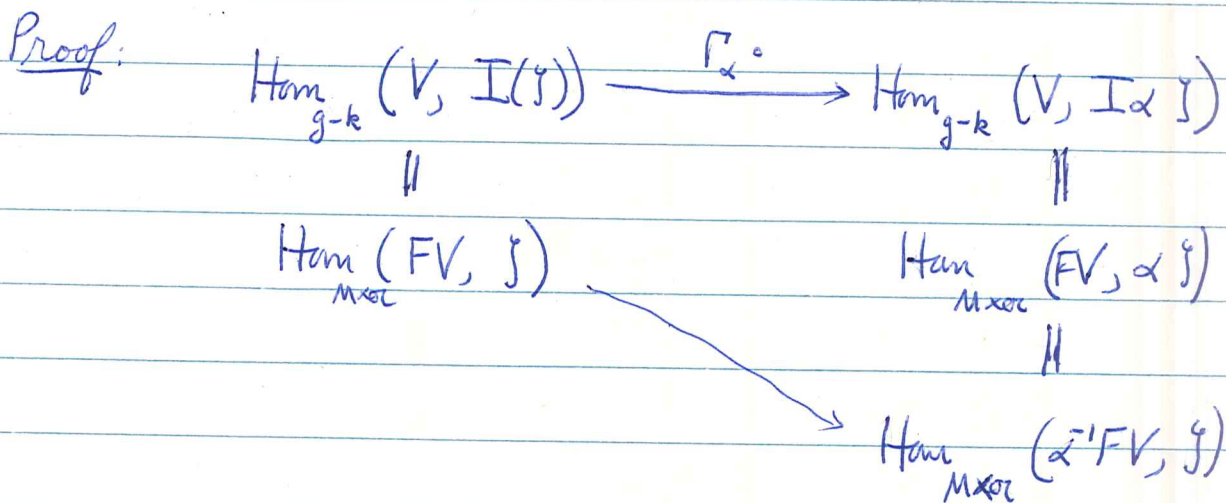 Proof:
Hom_{g-k} (V, I(ζ)) —Γ_α∘→ Hom_{g-k} (V, Iαζ)
|| ||
Hom_{M×α} (FV, ζ) Hom_{M×α} (FV, αζ)
||
Hom_{M×α} (α^{-1}FV, ζ)